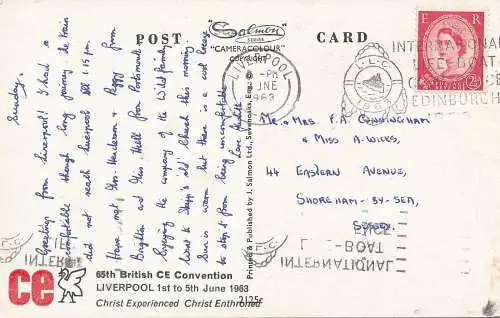 POST
CARD
Salmon
SERIES
"CAMERACOLOUR"
COPYRIGHT
LIVERPOOL
-PM
JUNE
1963
I.L.C.
1963
INTERNATIONAL
LIFE-BOAT
EDINBURGH
E R
2½
Sunday.
Greetings from Liverpool! I had a
comfortable though long journey de train
did not reach Liverpool till 1.15 pm.
Have met Mrs. Hardman & Peggy from
Brighton and Miss Hall from Portsmouth am
enjoying the company of the Wild family.
Went to Skipp's old Church this morning.
Sun is warm but there is a cool breeze
to stop it from being uncomfortable.
Love Judith
Printed & Published by J. Salmon Ltd., Sevenoaks, Eng.
Mr. & Mrs F.A. CUNNINGHAM
& MISS A. WICKS,
44 EASTERN AVENUE,
SHOREHAM-BY-SEA,
SUSSEX.
INTERNATIONAL
L -BOAT
ENCE
ce
65th British CE Convention
LIVERPOOL 1st to 5th June 1963
Christ Experienced Christ Enthroned
2125c